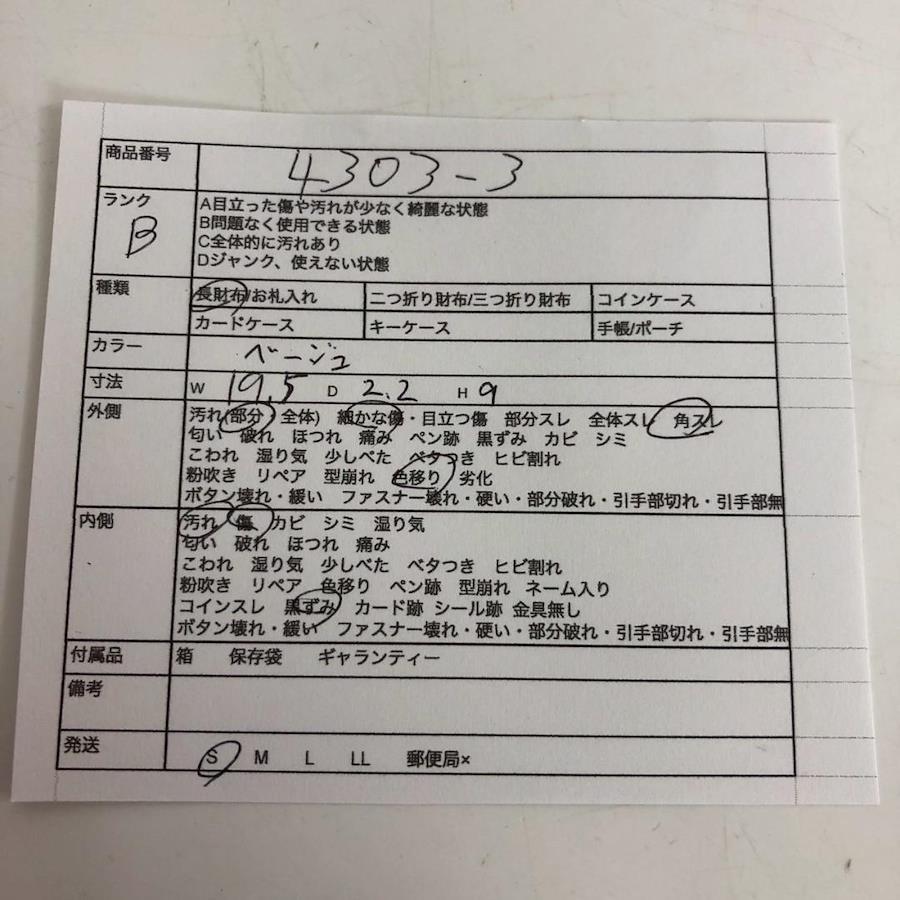 商品番号 4303-3
ランク B
A目立った傷や汚れが少なく綺麗な状態
B問題なく使用できる状態
C全体的に汚れあり
Dジャンク、使えない状態
種類 長財布/お札入れ 二つ折り財布/三つ折り財布 コインケース
カードケース キーケース 手帳/ポーチ
カラー ベージュ
寸法 W 19.5 D 2.2 H 9
外側 汚れ(部分 全体) 細かな傷・目立つ傷 部分スレ 全体スレ 角スレ
匂い 破れ ほつれ 痛み ペン跡 黒ずみ カビ シミ
こわれ 湿り気 少しべた ベタつき ヒビ割れ
粉吹き リペア 型崩れ 色移り 劣化
ボタン壊れ・緩い ファスナー壊れ・硬い・部分破れ・引手部切れ・引手部無
内側 汚れ 傷 カビ シミ 湿り気
匂い 破れ ほつれ 痛み
こわれ 湿り気 少しべた ベタつき ヒビ割れ
粉吹き リペア 色移り ペン跡 型崩れ ネーム入り
コインスレ 黒ずみ カード跡 シール跡 金具無し
ボタン壊れ・緩い ファスナー壊れ・硬い・部分破れ・引手部切れ・引手部無
付属品 箱 保存袋 ギャランティー
備考
発送 S M L LL 郵便局×